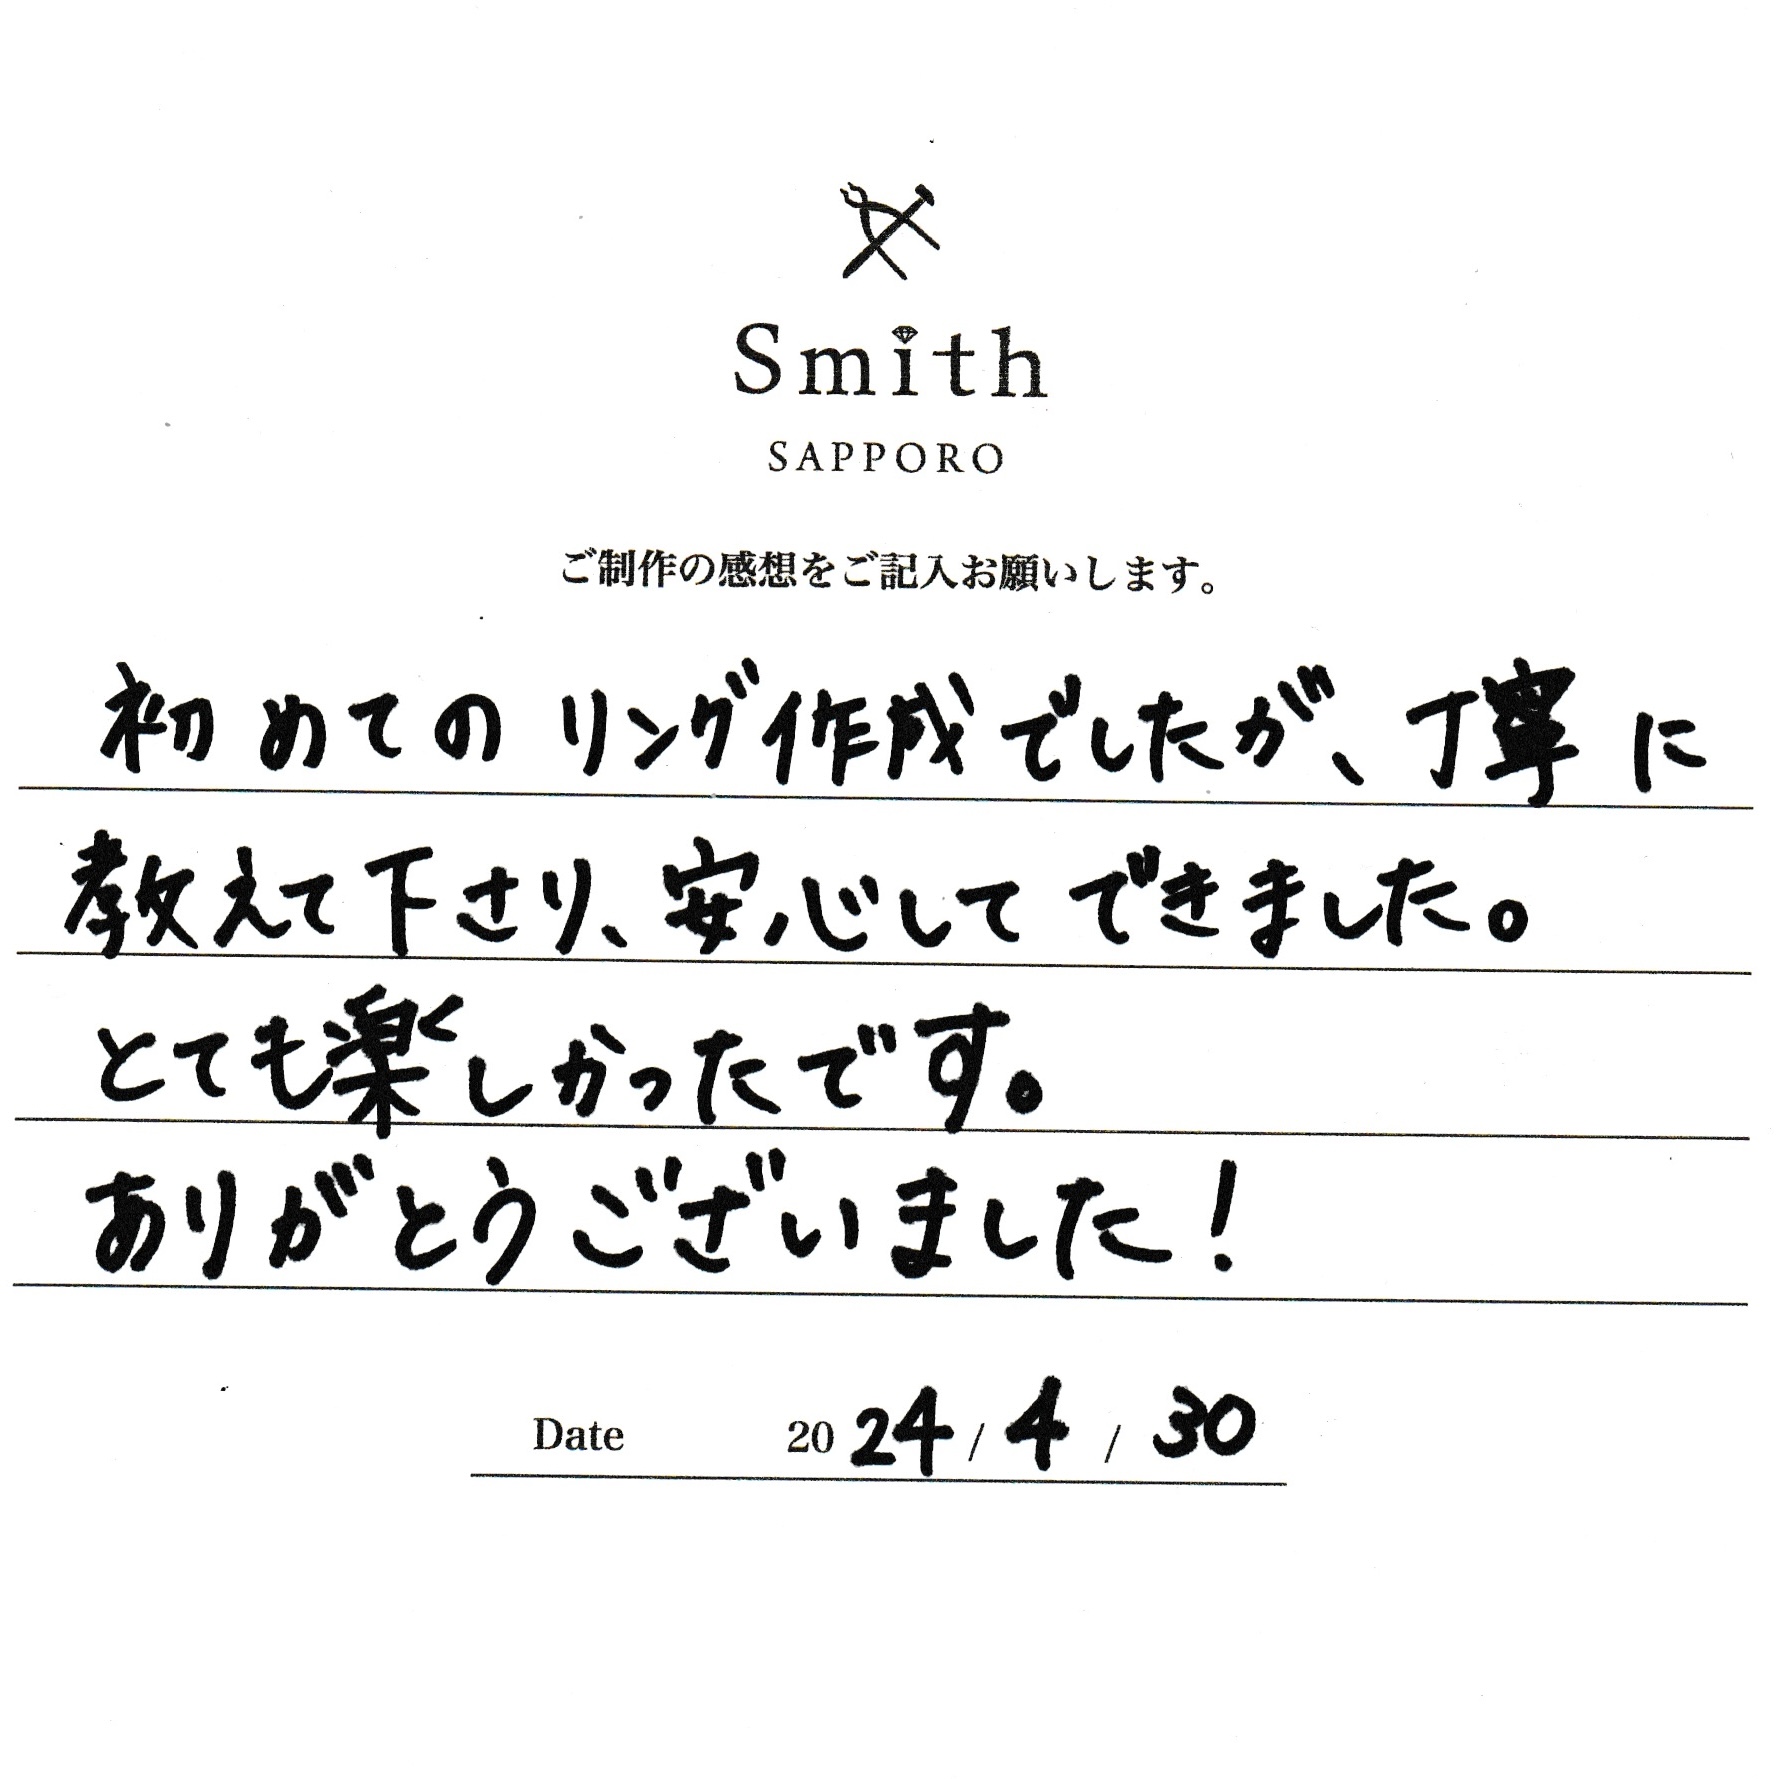 Smith
SAPPORO
ご制作の感想をご記入お願いします。
初めてのリング作成でしたが、丁寧に
教えて下さり、安心してできました。
とても楽しかったです。
ありがとうございました!
Date 2024/4/30